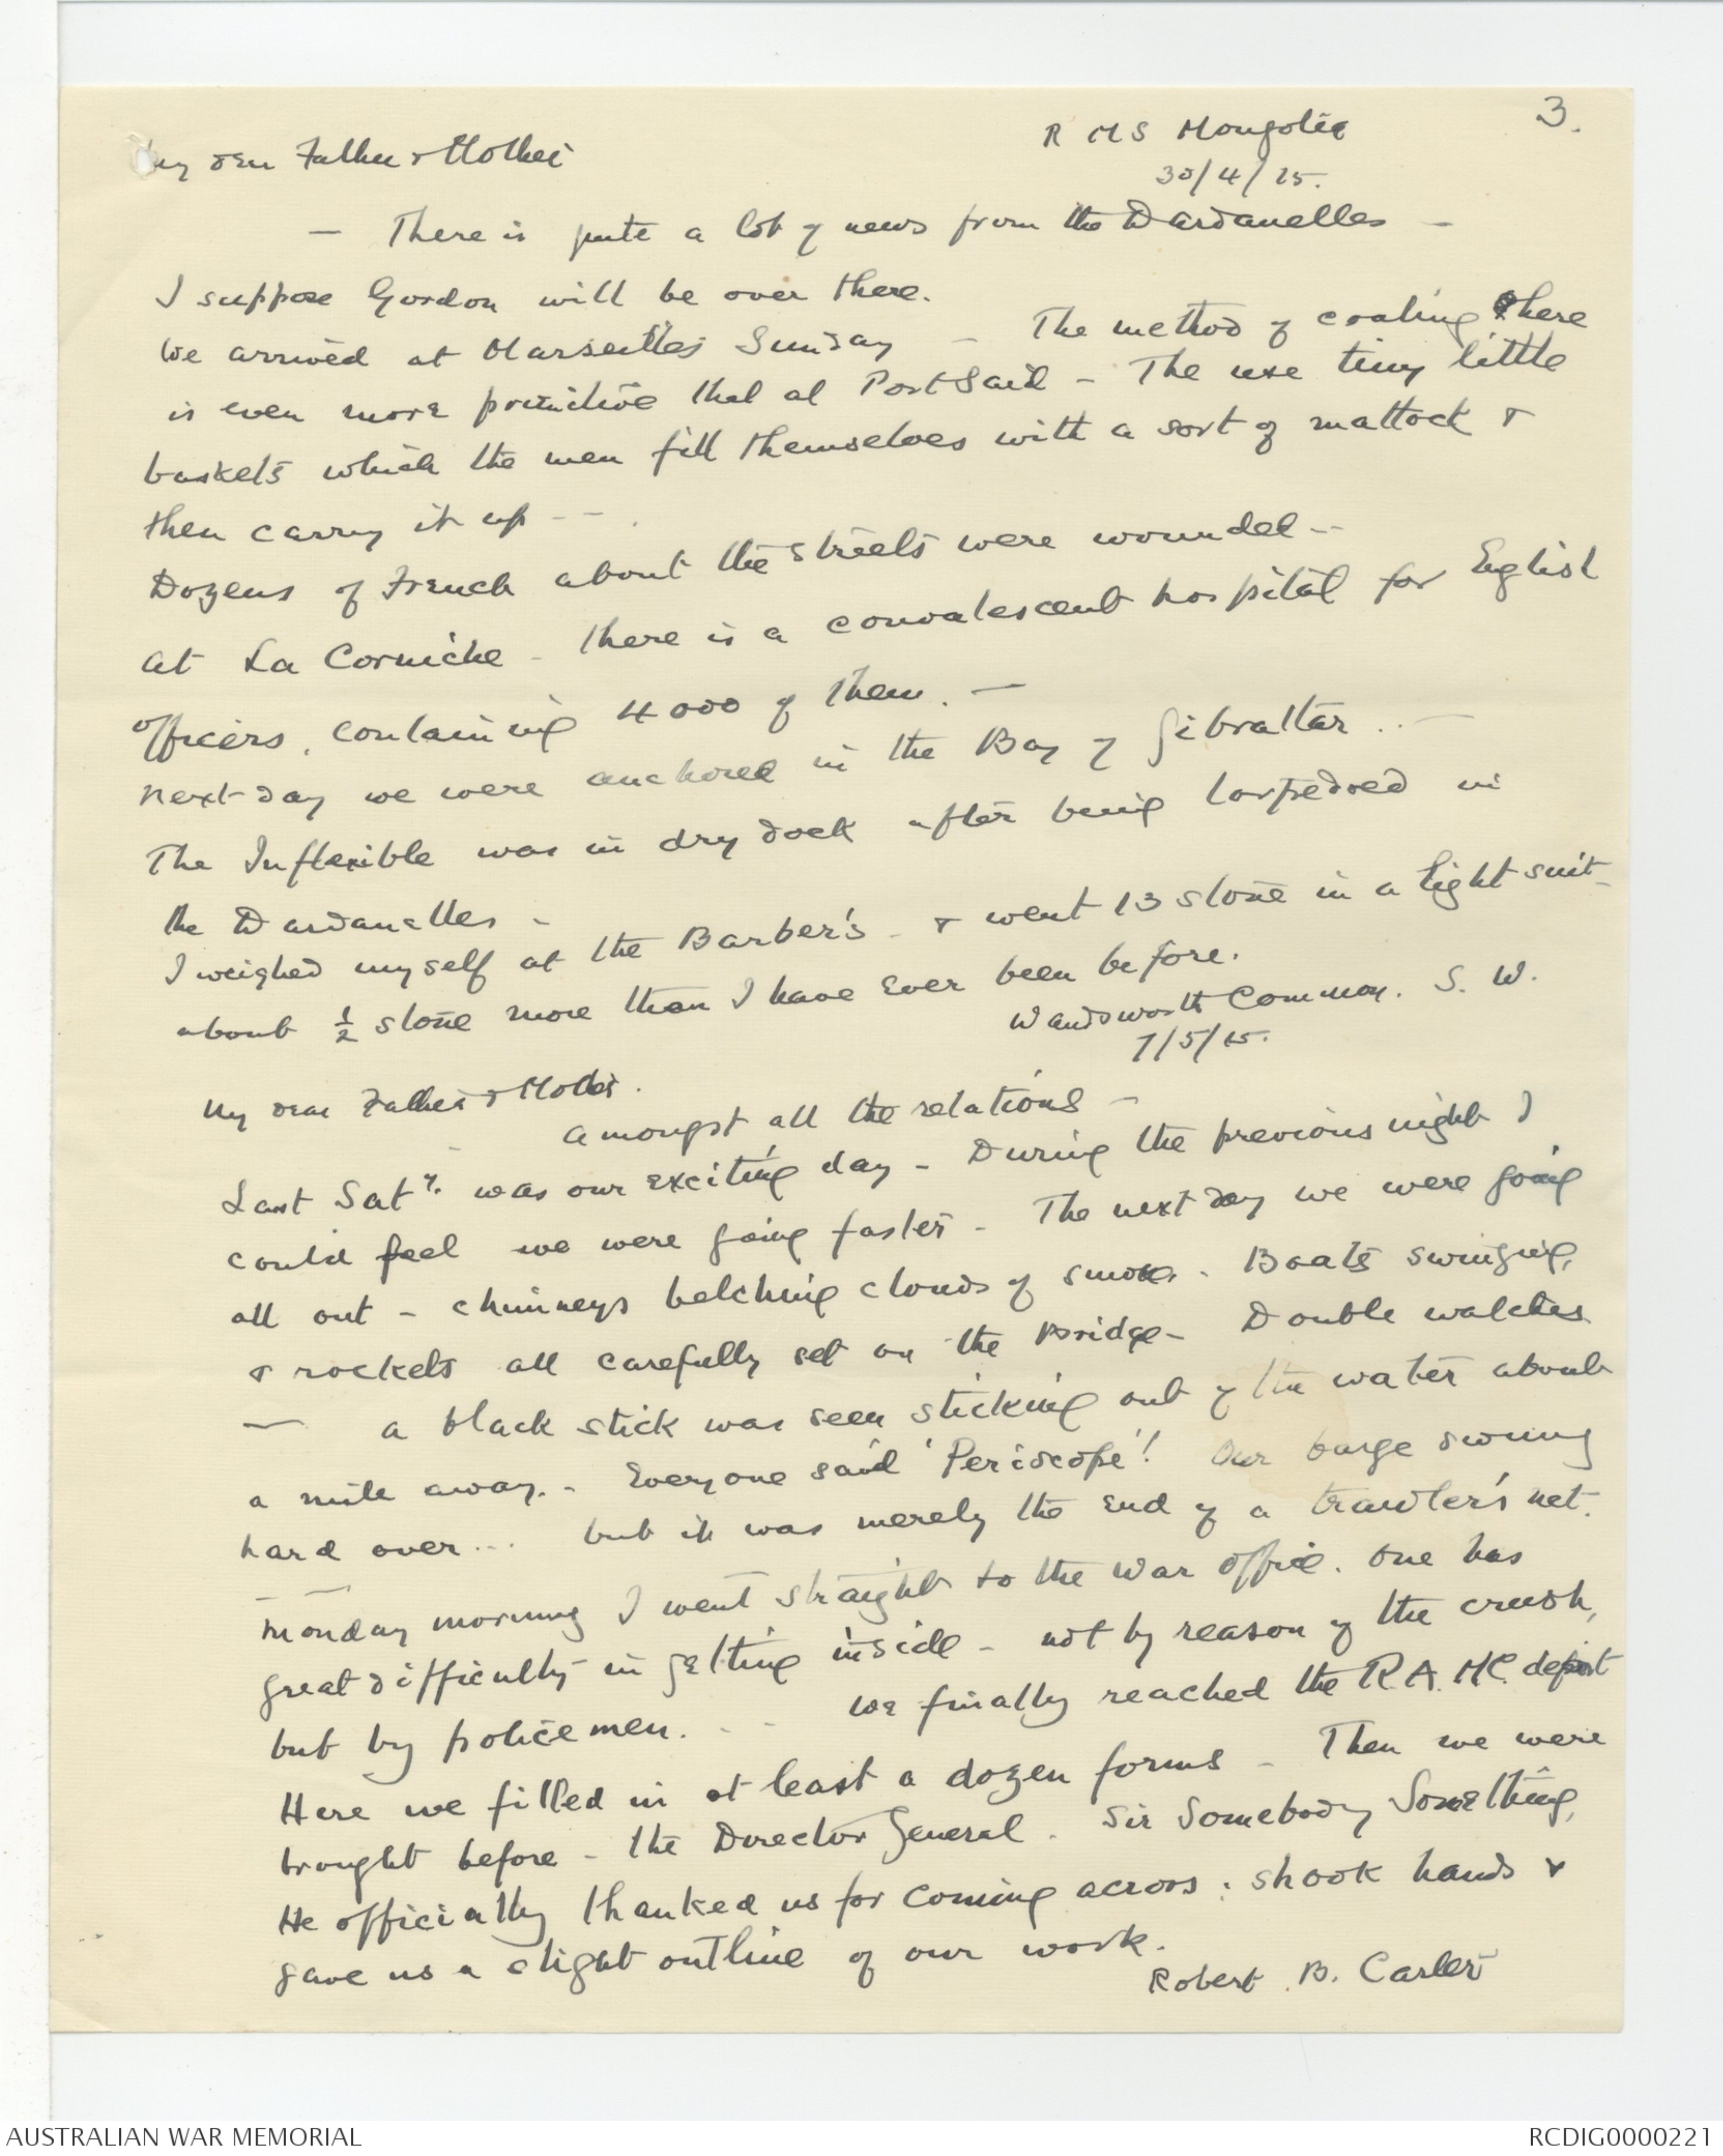 3.
R M S Mongolia
30/4/15.
My dear Father & Mother
— There is quite a lot of news from the Dardanelles —
I suppose Gordon will be over there.
We arrived at Marseilles Sunday — The method of coaling there
is even more primitive that at Port Said – The use tiny little
baskets which the men fill themselves with a sort of mattock &
then carry it up - - .
Dozens of French about the streets were wounded --
At La Corniche - there is a convalescent hospital for Eglish
officers, containing 4000 of them. —
Next day we were anchored in the Bay of Gibraltar . . —
The Inflexible was in dry dock after being torpedoed in
the Dardanelles -
I weighed myself at the Barber's - & went 13 stone in a light suit -
about ½ stone more than I have ever been before.
Wandsworth Common. S. W.
7/5/15.
My dear Father & Mother.
Amongst all the relations –
Last Saty. was our exciting day – During the previous night I
could feel we were going faster – The next day we were going
all out – chimneys belching clouds of smoke. Boats swinging,
& rockets all carefully set on the Bridge – Double watches
— a black stick was seen sticking out of the water about
a mile away. - Everyone said 'Periscope'! Our barge swung
hard over ... but it was merely the end of a trawler's net.
Monday morning I went straight to the War Office. One has
great difficulty in getting inside – not by reason of the crush,
but by policemen. - - We finally reached the R.A.M.C. depot
Here we filled in at least a dozen forms – Then we were
brought before – the Director General. Sir Somebody Something,
He officially thanked us for coming across ; shook hands &
gave us a slight outline of our work.
Robert B. Carter
AUSTRALIAN WAR MEMORIAL
RCDIG0000221